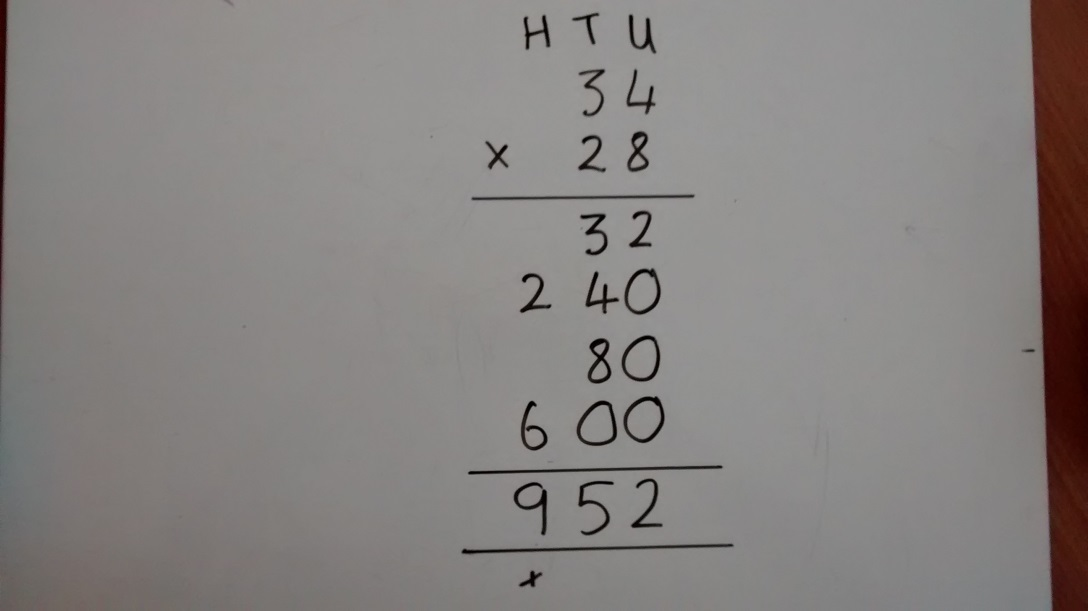 H T U
34
x 28
32
240
80
600
952